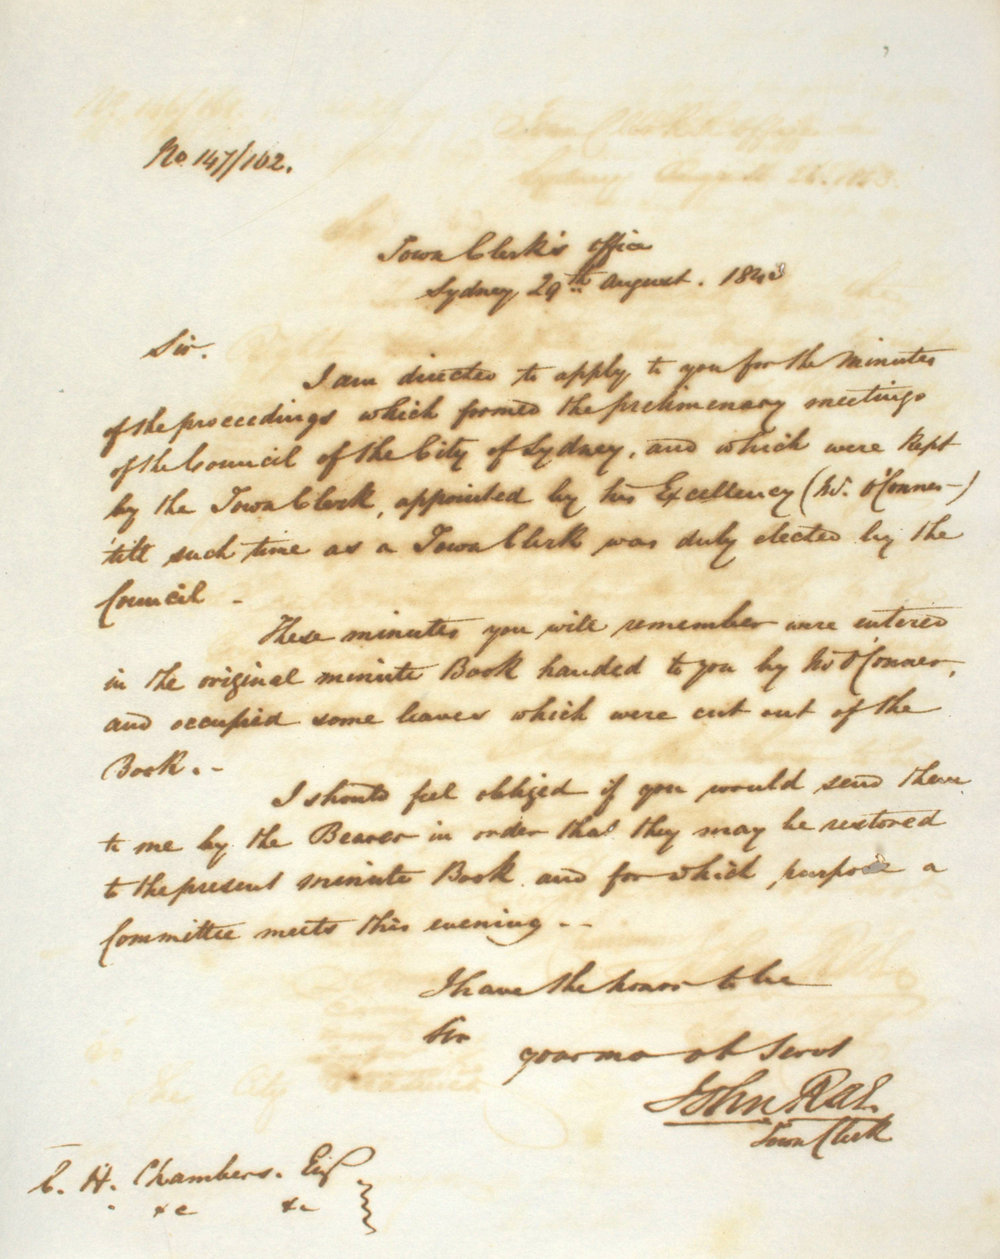 No. 147/102.
Town Clerk's office
Sydney 29th August. 1843
Sir.
I am directed to apply to you for the minutes
of the proceedings which formed the prelimenary meetings
of the Council of the City of Sydney, and which were kept
by the Town Clerk, appointed by his Excellency (Mr. O'Conner—)
'till such time as a Town Clerk was duly elected by the
Council -
These minutes you will remember were entered
in the original minute Book handed to you by Mr O'Conner,
and occupied some leaves which were cut out of the
Book. -
I should feel obliged if you would send them
to me by the Bearer in order that they may be restored
to the present minute Book and for which purpose a
Committee meets this evening - -
I have the honor to be
Sir
your mo ob Servt
John Rae
Town Clerk
C. H. Chambers. Esq
&c &c